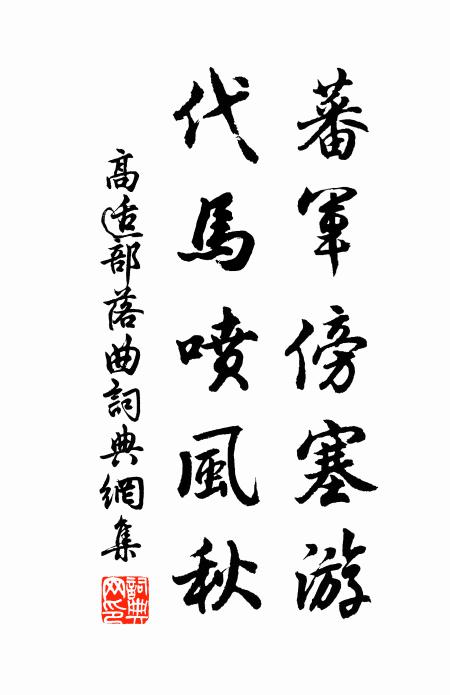 蕃軍傍塞游
代馬噴風秋
高適部落曲詞典網集
詞典
网印